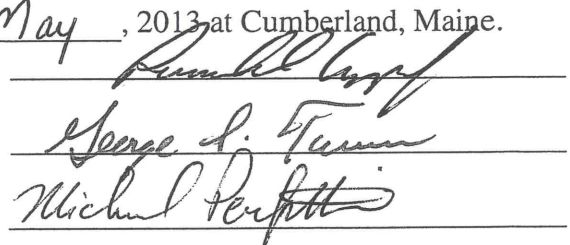 May , 2013 at Cumberland, Maine.
George L. Turner
Michael Perfetti